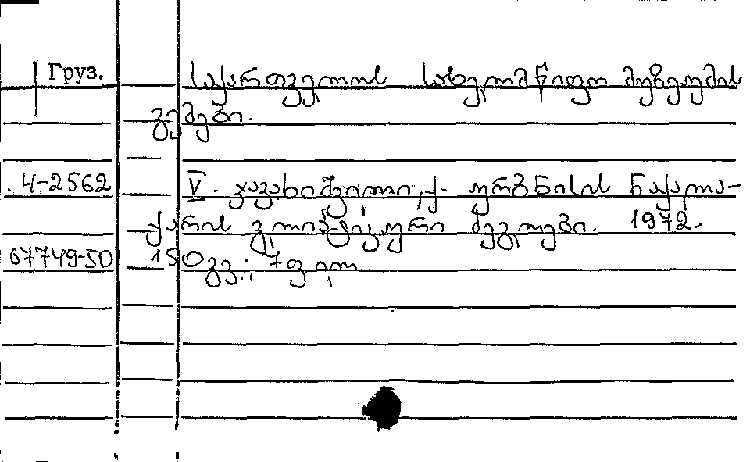 Груз. საქართველოს სახელმწიფო მუზეუმის
გემები.
4-2562 V. ჯავახიშვილი, ქ. ურბნისის ნაქალა-
ქარის გლიპტიკური ძეგლები. 1972.
67749-50 150გვ.; 7ფ ილ